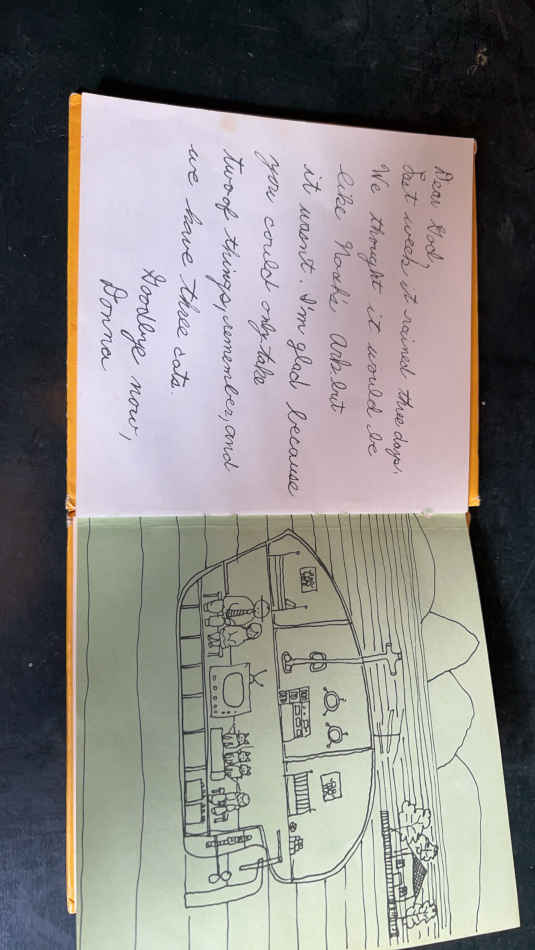 Dear God
Last week it rained three days.
We thought it would be
like Noah's Ark but
it wasn't. I'm glad because
you could only take
two of things, remember, and
we have three cats.
Goodbye now,
Donna